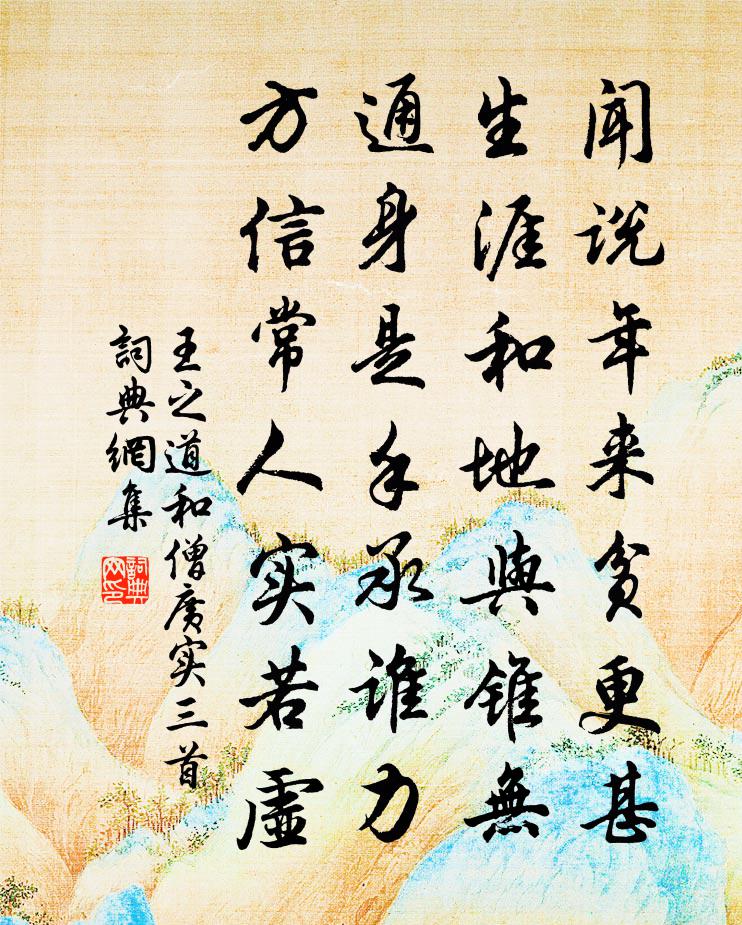 闻说年来贫更甚
生涯和地與锥無
通身是手承谁力
方信常人实若虛
王之道和僧彦实三首
詞典網集
詞典网印